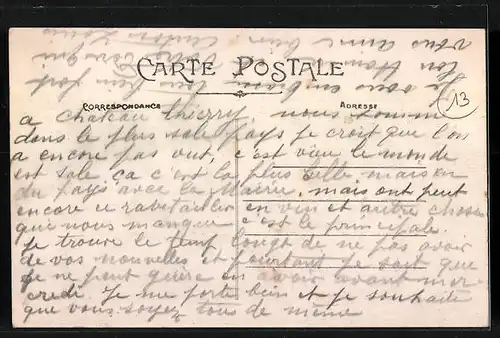 CARTE POSTALE
CORRESPONDANCE
ADRESSE
13
a chateau thierry, nous somme
dans le plus sale pays je croit que l'on
a encore pas vut, c'est vieu le monde
est sale ca c'est la plus belle maison
du pays avec la Mairie, mais ont peut
encore ce ravitailler en vin et autre chose
qui nous manque c'est le principale.
je trouve le temp longt de ne pas avoir
de vos nouvelles et pourtant je sait que
je ne peut guere en avoir avant mer
credi. Je me porte bien et je souhaite
que vous soyez tous de même
Je vous embrasse tous bien fort
ton
vous aime bien
Louis